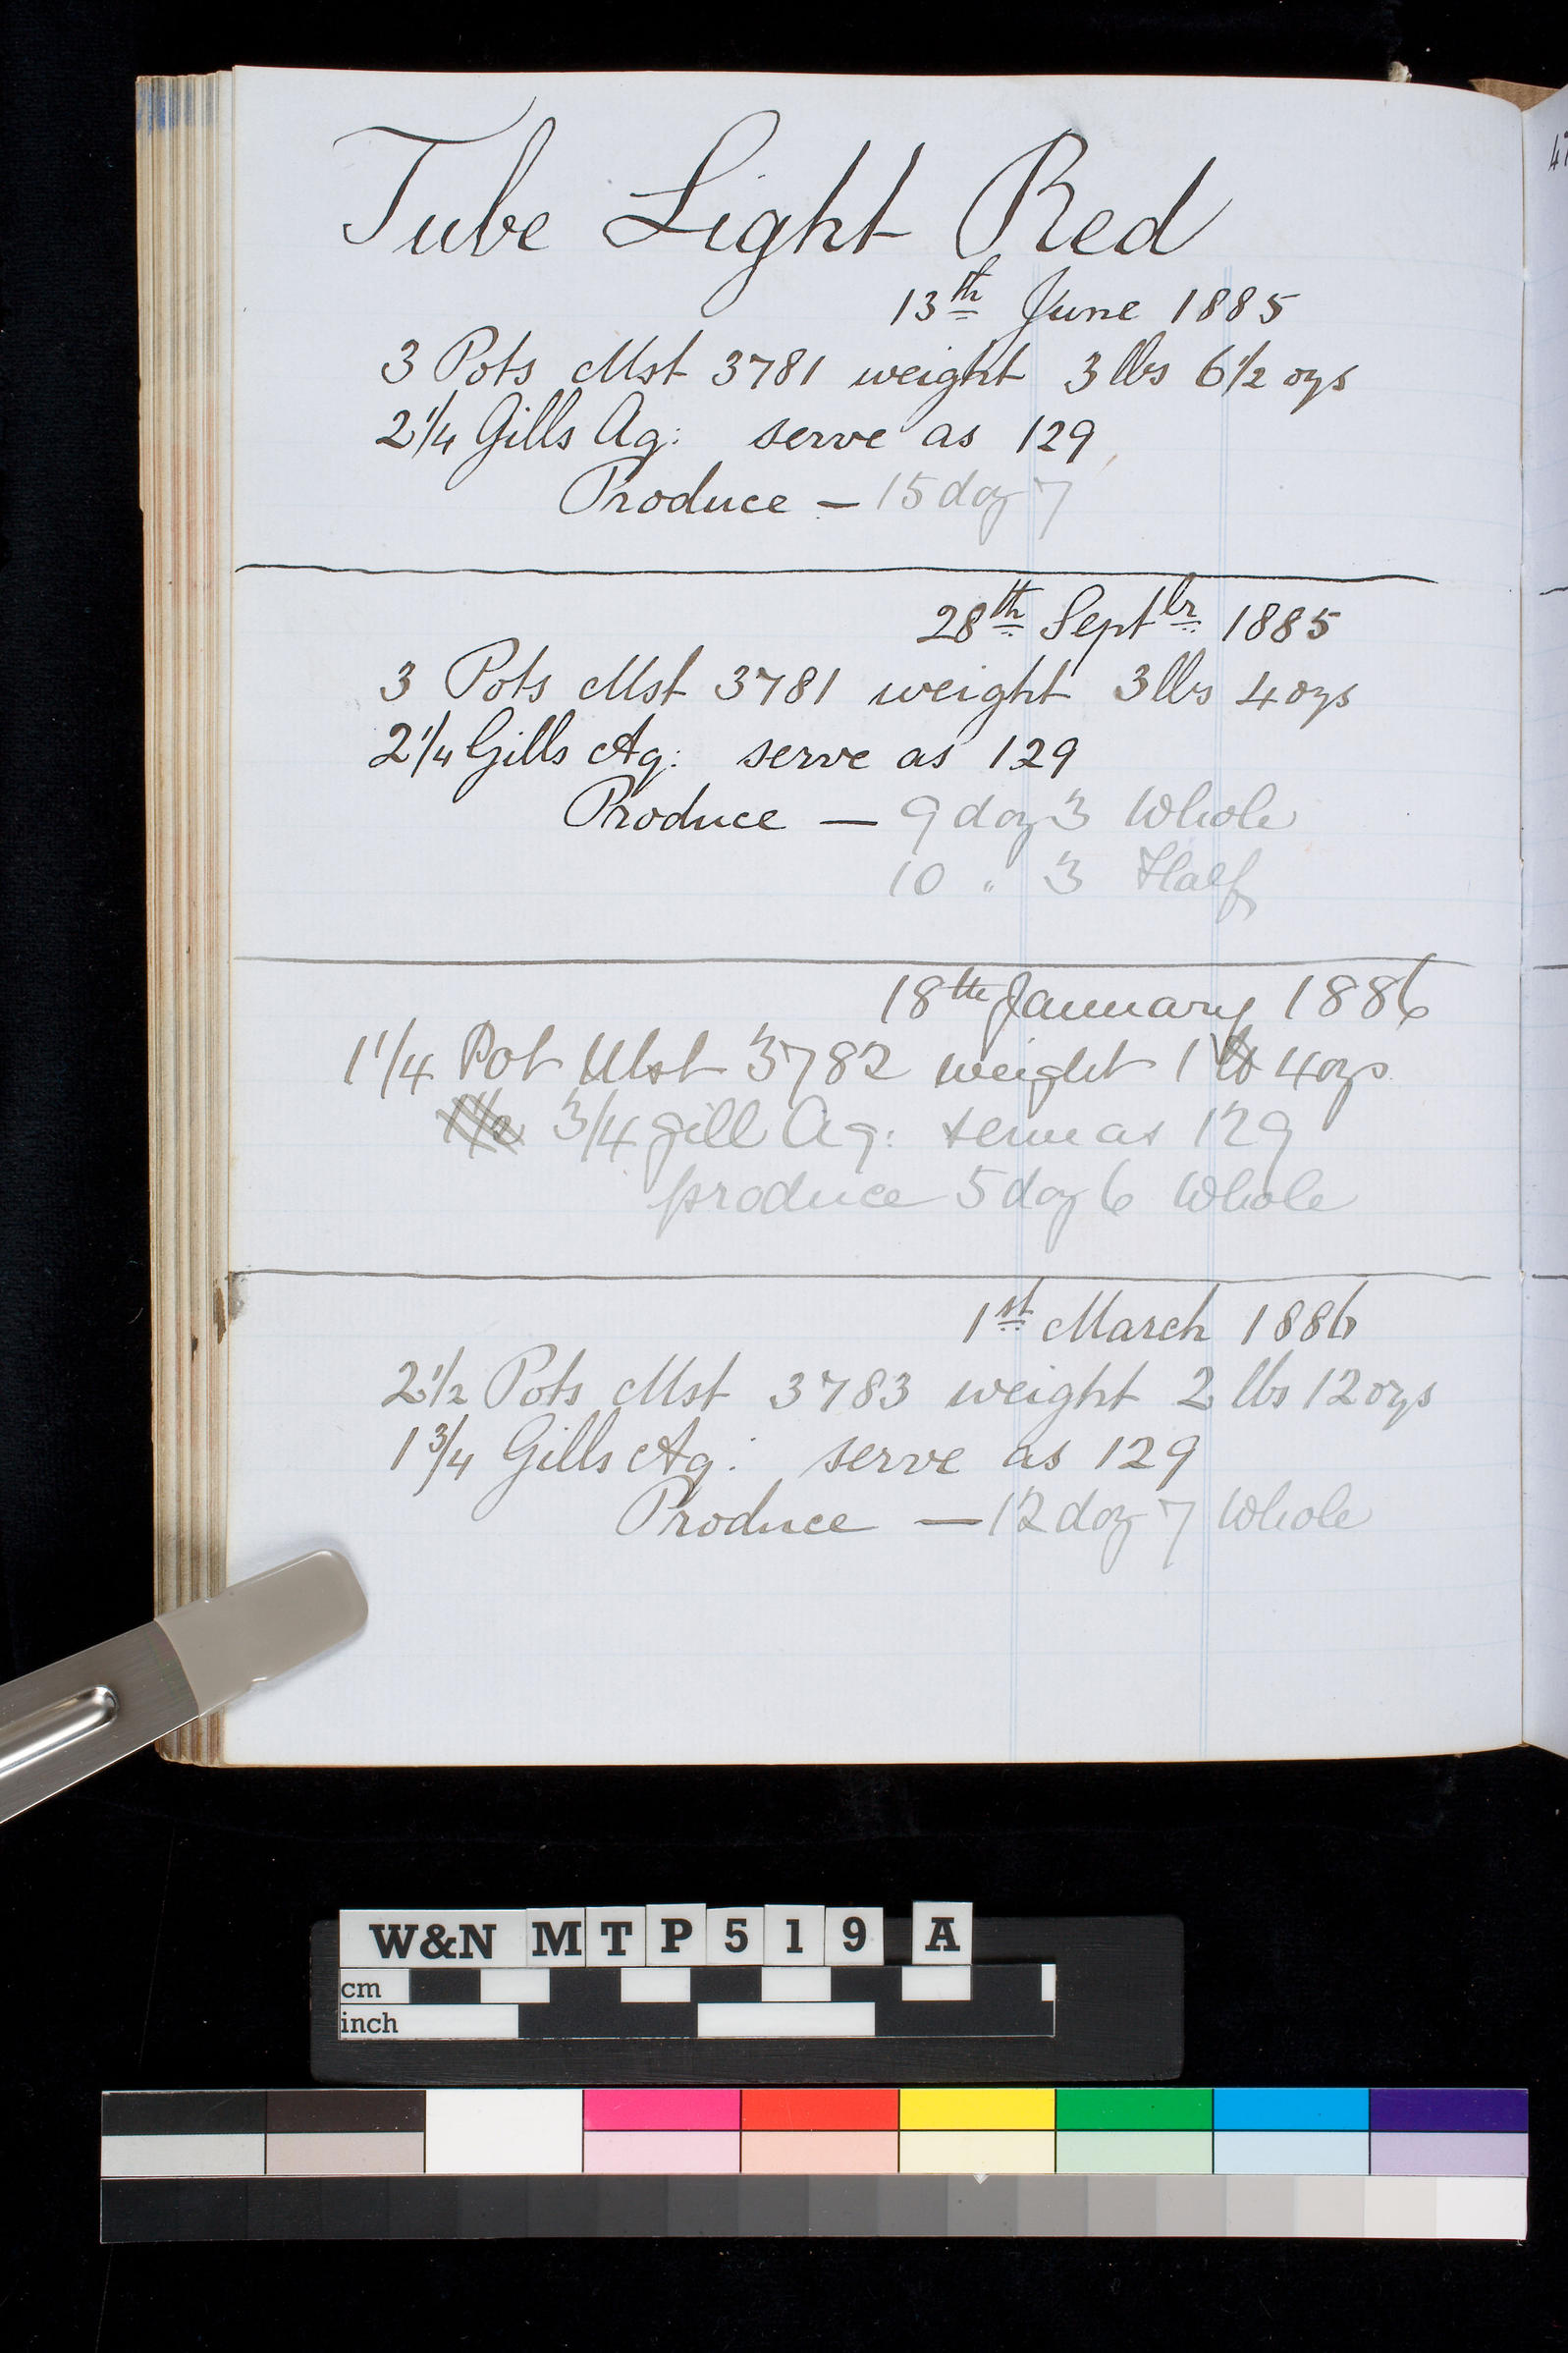 Tube Light Red
13th June 1885
3 Pots Mst 3781 weight 3 lbs 6 1/2 ozs
2 1/4 Gills Ag: serve as 129
Produce — 15 doz 7
28th Septbr 1885
3 Pots Mst 3781 weight 3 lbs 4 ozs
2 1/4 Gills Ag: serve as 129
Produce — 9 doz 3 Whole
10 " 3 Half
18th January 1886
1 1/4 Pot Mst 3782 weight 1 lb 4 ozs
1 1/2 3/4 gill Ag: serve as 129
produce 5 doz 6 Whole
1st March 1886
2 1/2 Pots Mst 3783 weight 2 lbs 12 ozs
1 3/4 Gills Ag: serve as 129
Produce — 12 doz 7 Whole
W&N MTP519 A
cm
inch